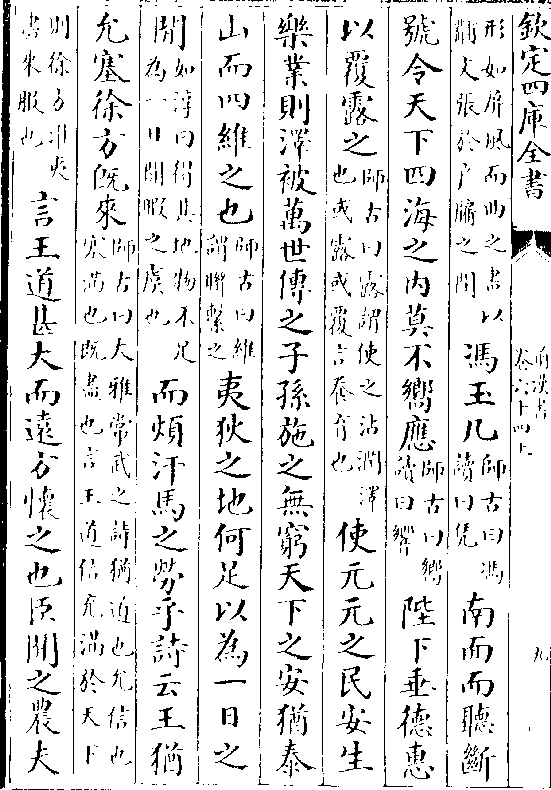 欽定四庫全書
前漢書
卷六十四上
九
形如屏風而曲之畫以
黼文張於户牖之間
馮玉几
師古曰馮
讀曰凭
南面而聽斷
號令天下四海之内莫不嚮應
師古曰嚮
讀曰響
陛下垂德惠
以覆露之
師古曰露謂使之沾潤澤
也或露或覆言養育也
使元元之民安生
樂業則澤被萬世傳之子孫施之無窮天下之安猶泰
山而四維之也
師古曰維
謂聯繫之
夷狄之地何足以為一日之
閒
如淳曰得其地物不足
為一日閒暇之虞也
而煩汗馬之勞乎詩云王猶
允塞徐方既來
師古曰大雅常武之詩猶道也允信也
塞滿也既盡也言王道信充滿於天下
則徐方淮夷
盡來服也
言王道甚大而遠方懷之也臣聞之農夫